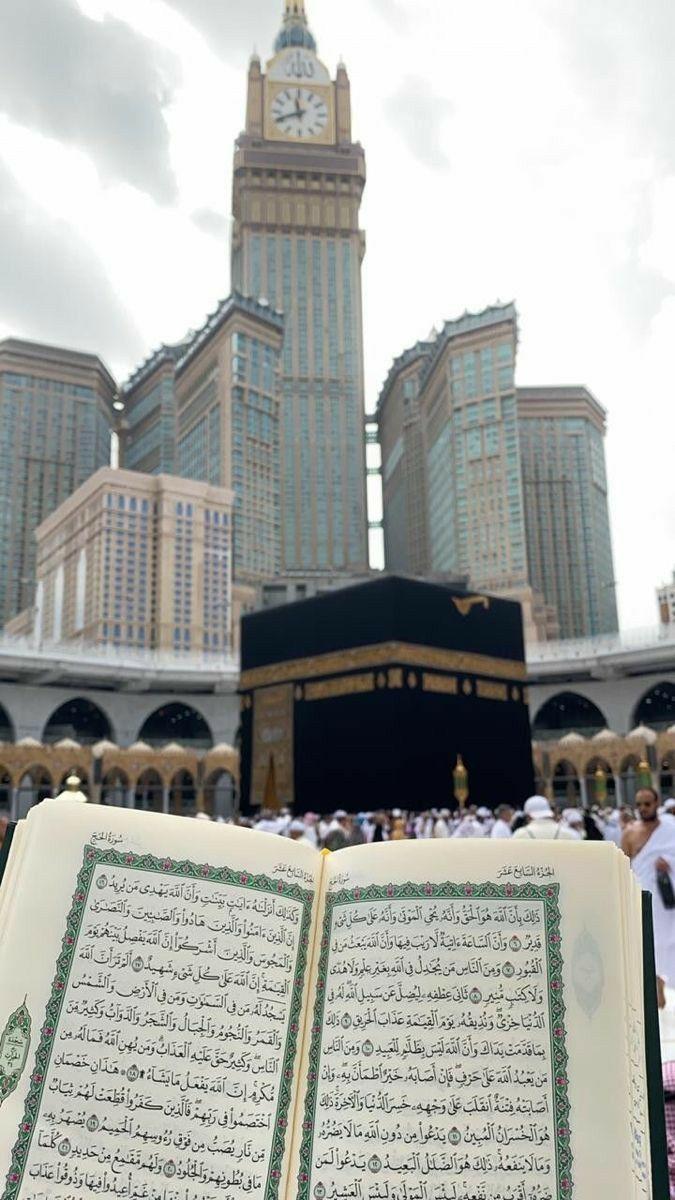 الله
الجزء السابع عشر
سورة
ذَٰلِكَ بِأَنَّ ٱللَّهَ هُوَ ٱلْحَقُّ وَأَنَّهُۥ يُحْىِ ٱلْمَوْتَىٰ وَأَنَّهُۥ عَلَىٰ كُلِّ شَىْءٍ
قَدِيرٌ ٦ وَأَنَّ ٱلسَّاعَةَ ءَاتِيَةٌ لَّا رَيْبَ فِيهَا وَأَنَّ ٱللَّهَ يَبْعَثُ مَن فِى
ٱلْقُبُورِ ٧ وَمِنَ ٱلنَّاسِ مَن يُجَٰدِلُ فِى ٱللَّهِ بِغَيْرِ عِلْمٍ وَلَا هُدًى
وَلَا كِتَٰبٍ مُّنِيرٍ ٨ ثَانِىَ عِطْفِهِۦ لِيُضِلَّ عَن سَبِيلِ ٱللَّهِ لَهُۥ فِى
ٱلدُّنْيَا خِزْىٌ وَنُذِيقُهُۥ يَوْمَ ٱلْقِيَٰمَةِ عَذَابَ ٱلْحَرِيقِ ٩ ذَٰلِكَ
بِمَا قَدَّمَتْ يَدَاكَ وَأَنَّ ٱللَّهَ لَيْسَ بِظَلَّٰمٍ لِّلْعَبِيدِ ١٠ وَمِنَ ٱلنَّاسِ
مَن يَعْبُدُ ٱللَّهَ عَلَىٰ حَرْفٍ فَإِنْ أَصَابَهُۥ خَيْرٌ ٱطْمَأَنَّ بِهِۦ وَإِنْ
أَصَابَتْهُ فِتْنَةٌ ٱنقَلَبَ عَلَىٰ وَجْهِهِۦ خَسِرَ ٱلدُّنْيَا وَٱلْءَاخِرَةَ ذَٰلِكَ
هُوَ ٱلْخُسْرَانُ ٱلْمُبِينُ ١١ يَدْعُوا۟ مِن دُونِ ٱللَّهِ مَا لَا يَضُرُّهُۥ
وَمَا لَا يَنفَعُهُۥ ذَٰلِكَ هُوَ ٱلضَّلَٰلُ ٱلْبَعِيدُ ١٢ يَدْعُوا۟ لَمَن
ضَرُّهُۥٓ أَقْرَبُ مِن نَّفْعِهِۦ لَبِئْسَ ٱلْمَوْلَىٰ وَلَبِئْسَ ٱلْعَشِيرُ ١٣
الجزء السابع عشر
سورة الحج
وَكَذَٰلِكَ أَنزَلْنَٰهُ ءَايَٰتٍۭ بَيِّنَٰتٍ وَأَنَّ ٱللَّهَ يَهْدِى مَن يُرِيدُ ١٦
إِنَّ ٱلَّذِينَ ءَامَنُوا۟ وَٱلَّذِينَ هَادُوا۟ وَٱلصَّٰبِـِٔينَ وَٱلنَّصَٰرَىٰ
وَٱلْمَجُوسَ وَٱلَّذِينَ أَشْرَكُوٓا۟ إِنَّ ٱللَّهَ يَفْصِلُ بَيْنَهُمْ يَوْمَ
ٱلْقِيَٰمَةِ إِنَّ ٱللَّهَ عَلَىٰ كُلِّ شَىْءٍ شَهِيدٌ ١٧ أَلَمْ تَرَ أَنَّ ٱللَّهَ
يَسْجُدُ لَهُۥ مَن فِى ٱلسَّمَٰوَٰتِ وَمَن فِى ٱلْأَرْضِ وَٱلشَّمْسُ
وَٱلْقَمَرُ وَٱلنُّجُومُ وَٱلْجِبَالُ وَٱلشَّجَرُ وَٱلدَّوَآبُّ وَكَثِيرٌ مِّنَ
ٱلنَّاسِ وَكَثِيرٌ حَقَّ عَلَيْهِ ٱلْعَذَابُ وَمَن يُهِنِ ٱللَّهُ فَمَا لَهُۥ مِن
مُّكْرِمٍ إِنَّ ٱللَّهَ يَفْعَلُ مَا يَشَآءُ ۩ ١٨ هَٰذَانِ خَصْمَانِ
ٱخْتَصَمُوا۟ فِى رَبِّهِمْ فَٱلَّذِينَ كَفَرُوا۟ قُطِّعَتْ لَهُمْ ثِيَابٌ
مِّن نَّارٍ يُصَبُّ مِن فَوْقِ رُءُوسِهِمُ ٱلْحَمِيمُ ١٩ يُصْهَرُ بِهِۦ
مَا فِى بُطُونِهِمْ وَٱلْجُلُودُ ٢٠ وَلَهُم مَّقَٰمِعُ مِنْ حَدِيدٍ ٢١ كُلَّمَآ
أُعِيدُوا۟ فِيهَا وَذُوقُوا۟ عَذَابَ